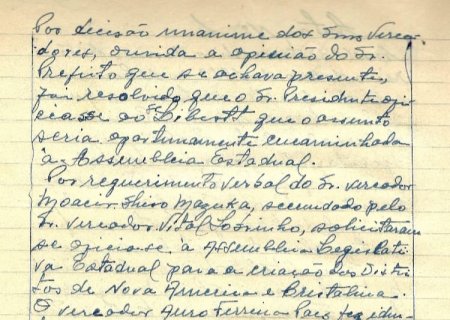 Por decisão unanime dos Snrs Verea-
dores, ouvida a opinião do Sr.
Prefeito que se achava presente,
foi resolvido que o Sr. Presidente ofi
ciasse ao Sr Liberti que o assunto
seria oportunamente encaminhada
à Assembleia Estadual.
Por requerimento verbal do Sr. vereador
Moacir Shiro Mazuka, secundado pelo
Sr. vereador Vital Sobrinho, solicitaram
se oficia-se à Assembleia Legislati
va Estadual para a criação dos Distri
tos de Nova America e Cristalina.
O vereador Auro Ferreira